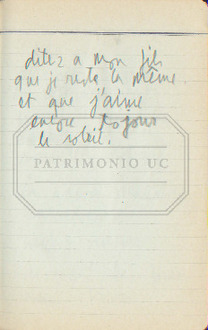 ditez a mon fils
que je reste la même
et que j'aime
encore tojour
le soleil.
PATRIMONIO UC